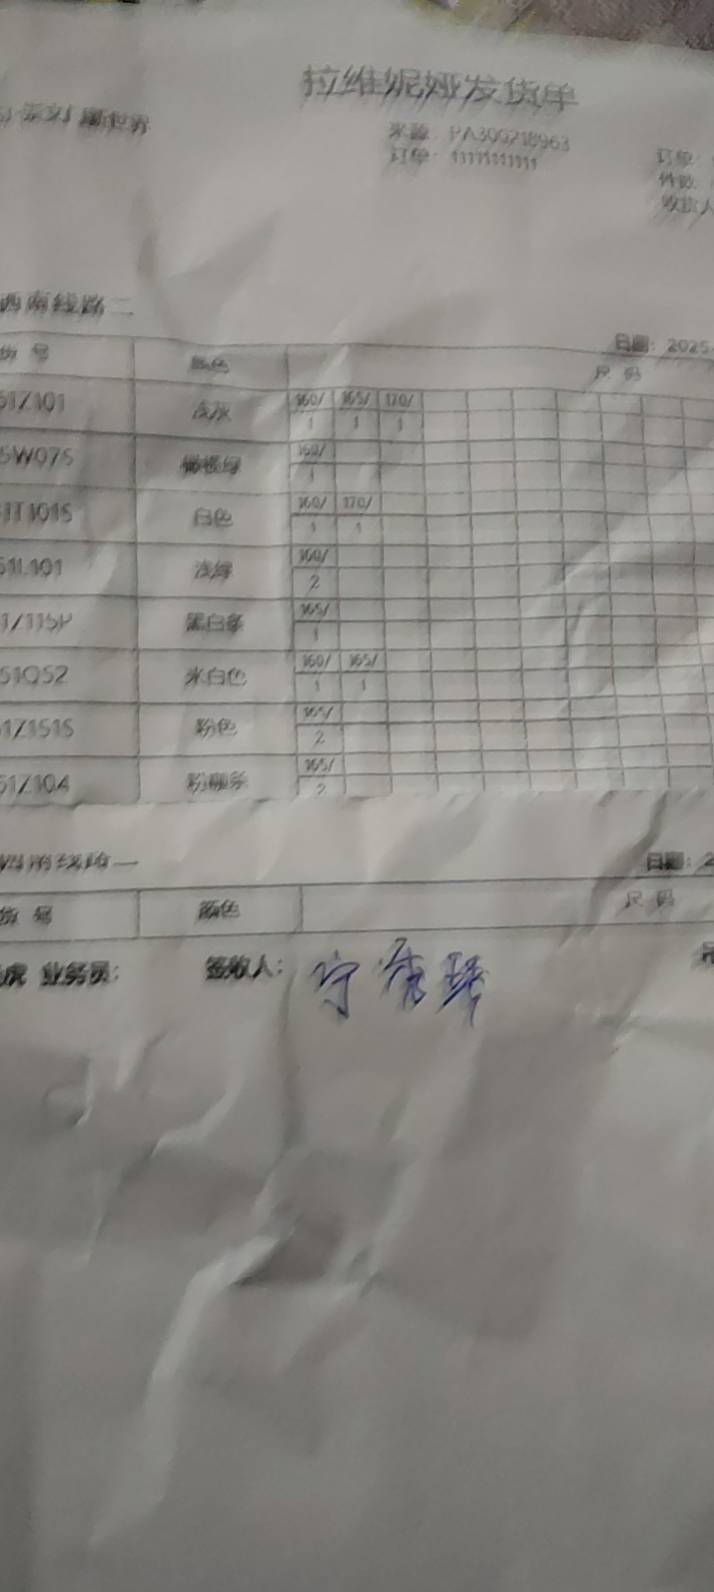 拉维妮娅发货单
新世界
来源: PA300218963
订单: 11111111111
订单:
件数:
收货人
西南线路二
日期: 2025
货 号 颜色 尺 码
51Z101 浅灰 160/ 165/ 170/
1 1 1
5W075 橄榄绿 160/
1
1T1015 白色 160/ 170/
1 1
51L101 浅绿 160/
2
1Z115P 黑白条 165/
1
51Q52 米白色 160/ 165/
1 1
1Z1515 粉色 165/
2
51Z104 165/
2
西南线路一
日期: 2
货 号 颜色 尺 码
业务员: 签收人: 宁